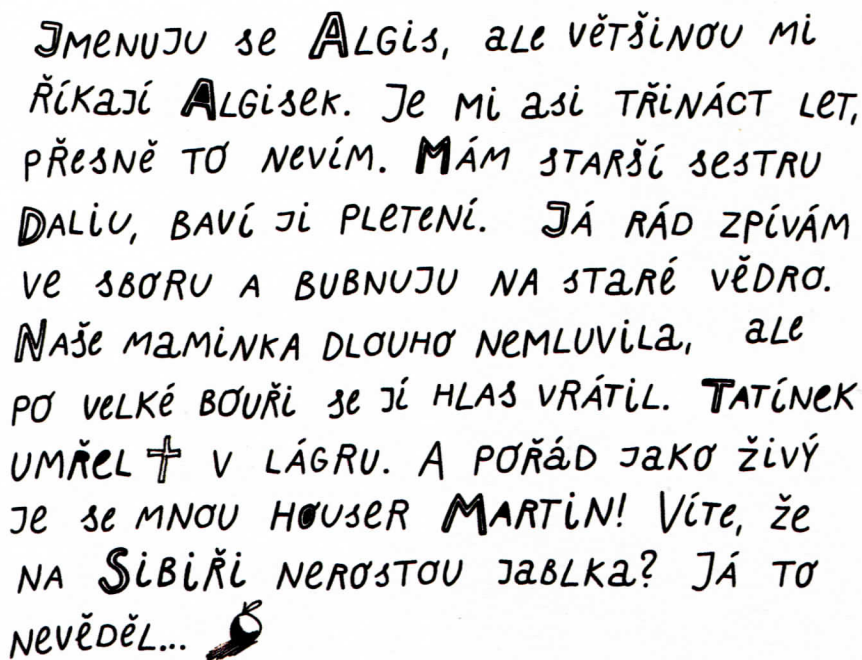 Jmenuju se Algis, ale většinou mi
říkají Algisek. Je mi asi třináct let,
přesně to nevím. Mám starší sestru
Daliu, baví ji pletení. Já rád zpívám
ve sboru a bubnuju na staré vědro.
Naše maminka dlouho nemluvila, ale
po velké bouři se jí hlas vrátil. Tatínek
umřel ✝ v lágru. A pořád jako živý
je se mnou houser Martin! Víte, že
na Sibiři nerostou jablka? Já to
nevěděl...